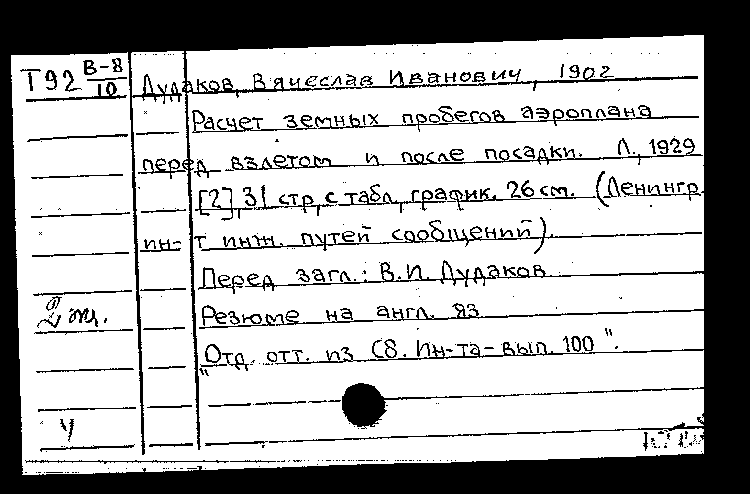 Т92 В-8/10
Дудаков, Вячеслав Иванович, 1902
Расчет земных пробегов аэроплана
перед взлетом и после посадки. Л., 1929
[2], 31 стр, с табл, график. 26 см. (Ленингр.
ин-т инж. путей сообщений).
Перед загл.: В.И. Дудаков
2 эк.
Резюме на англ. яз
"Отд. отт. из Сб. Ин-та-вып. 100".
У